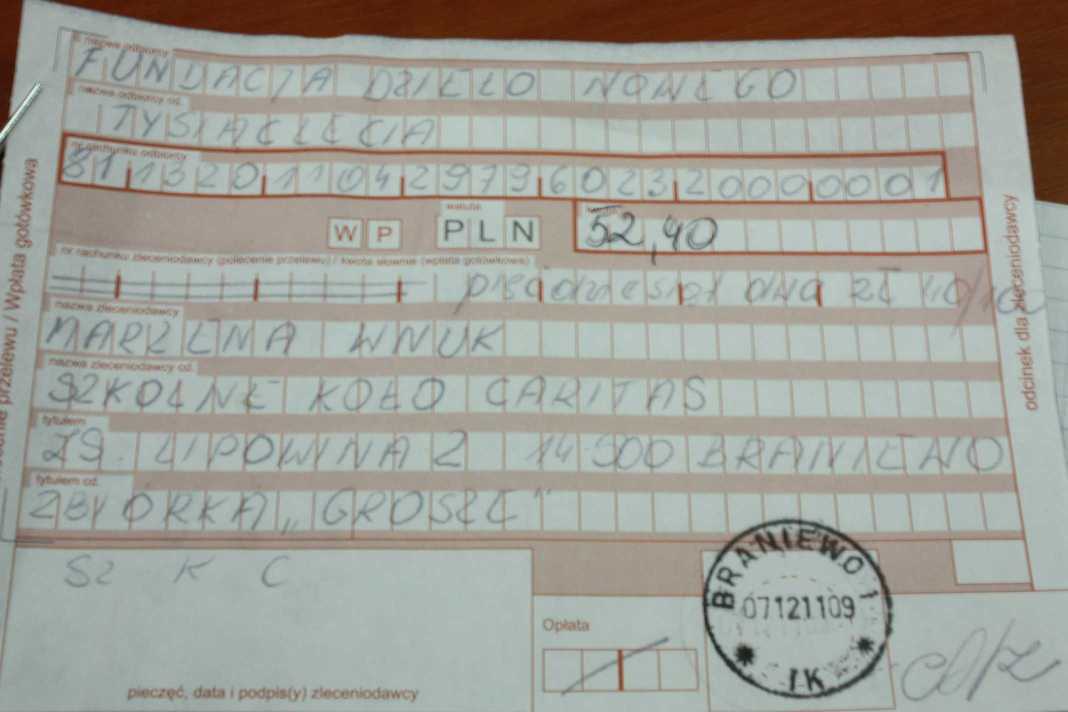 nazwa odbiorcy
FUNDACJA DZIEŁO NOWEGO
nazwa odbiorcy cd.
TYSIĄCLECIA
nr rachunku odbiorcy
81 1320 1104 2979 6023 2000 0001
W P
waluta
PLN
52,40
nr rachunku zleceniodawcy (polecenie przelewu) / kwota słownie (wpłata gotówkowa)
pięćdziesiąt dwa zł 40/100
nazwa zleceniodawcy
MARZENA WNUK
nazwa zleceniodawcy cd.
SZKOLNE KOŁO CARITAS
tytułem
ZS. LIPOWINA 2 14-500 BRANIEWO
tytułem cd.
ZBIÓRKA „GROSZE"
SZ K C
pieczęć, data i podpis(y) zleceniodawcy
Opłata
BRANIEWO 1
07121109
IK
przelewu / Wpłata gotówkowa
odcinek dla zleceniodawcy